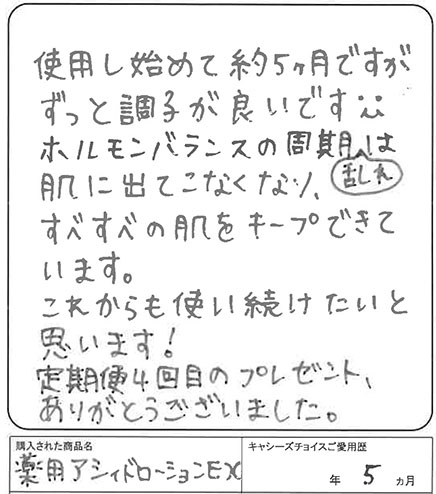 使用し始めて約5ヶ月ですが
ずっと調子が良いです
ホルモンバランスの周期乱れは
肌に出てこなくなり、
すべすべの肌をキープできて
います。
これからも使い続けたいと
思います!
定期便4回目のプレゼント、
ありがとうございました。
購入された商品名
キャシーズチョイスご愛用歴
薬用アシィドローションEX
年 5 ヵ月